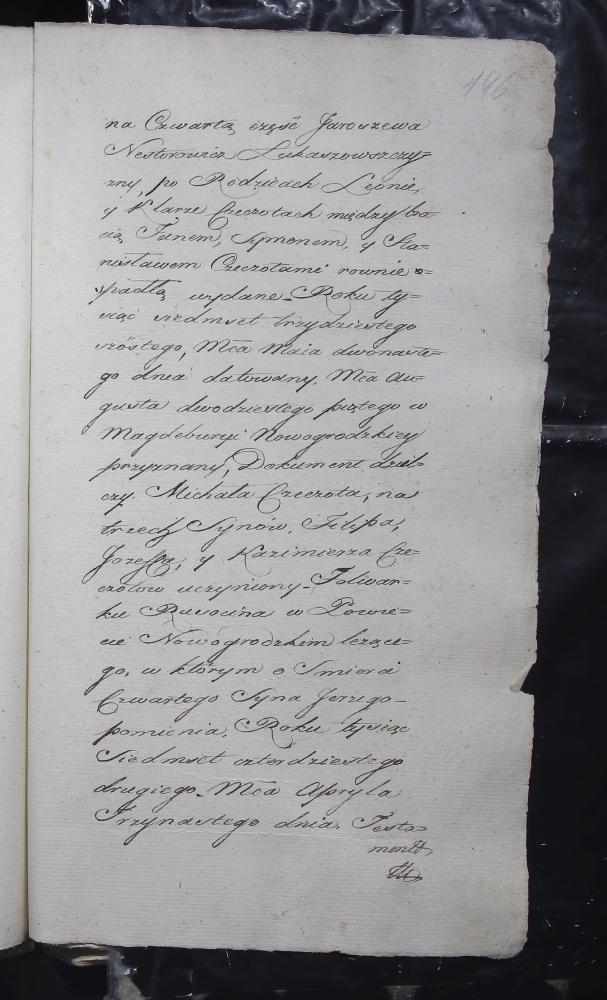 146
na Czwartą część Jaroszewa
Nestorowicz Łukaszowszczy-
zny, po Rodzicach Leonie,
y Klarze Czeczotach między bra-
cią, Janem, Symonem, y Sta-
nisławem Czeczotami rownie o-
padłą wydane. Roku ty-
siąc siedmset trzydziestego
szóstego, Mca Maia dwónaste-
go dnia datowany. Mca Au-
gusta dwodziestego piątego w
Magdeburyi Nowogrodzkiey
przyznany, Dokument dziel-
czy. Michała Czeczota, na
trzech Synów, Filipa,
Jozefa, y Kazimierza Cze-
czotow uczyniony. Folwar-
ku Ruwocina w Powie-
cie Nowogrodzkim leżące-
go, w którym o Smierci
Czwartego Syna Jerzego
pomienia. Roku tysiąc
Siedmset czterdziestego
drugiego. Mca Apryla
Trzynastego dnia. Testa-
ment